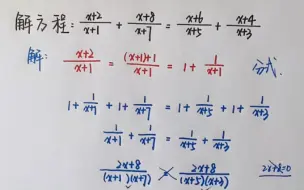 解方程: \frac{x+2}{x+1} + \frac{x+8}{x+7} = \frac{x+6}{x+5} + \frac{x+4}{x+3}
解: \frac{x+2}{x+1} = \frac{(x+1)+1}{x+1} = 1 + \frac{1}{x+1} 分式.
1 + \frac{1}{x+1} + 1 + \frac{1}{x+7} = 1 + \frac{1}{x+5} + 1 + \frac{1}{x+3}
\frac{1}{x+1} + \frac{1}{x+7} = \frac{1}{x+5} + \frac{1}{x+3}
\frac{2x+8}{(x+1)(x+7)} = \frac{2x+8}{(x+5)(x+3)} 2x+8=0